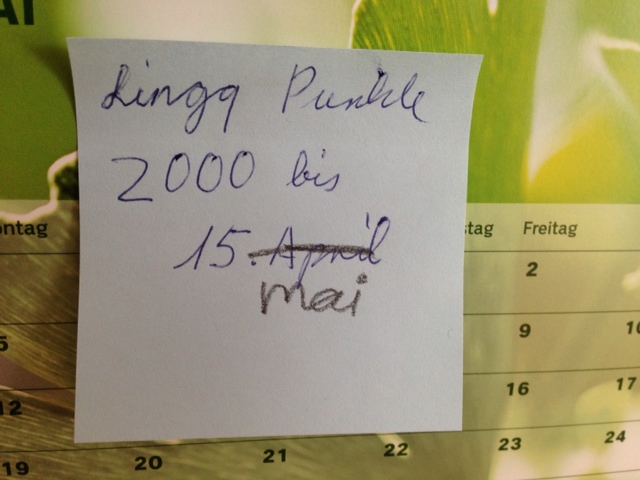 AI
Lingq Punkte
2000 bis
15. April
mai
ontag stag Freitag
2
5 9 10
12 16 17
19 20 21 22 23 24